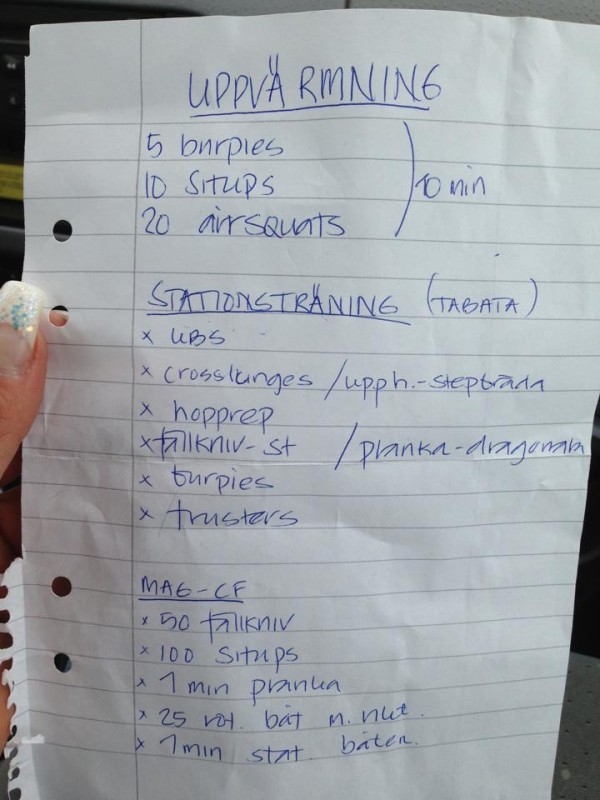 UPPVÄRMNING
5 burpies
10 situps
20 airsquats
10 min
STATIONSTRÄNING (TABATA)
x UBS
x crosslunges / upph.-stepbräda
x hopprep
x fällkniv-st / planka-dragonarm
x burpies
x trusters
MAG-CF
x 50 fällkniv
x 100 situps
x 1 min planka
x 25 rot. båt m. vikt.
x 1 min stat. båten.